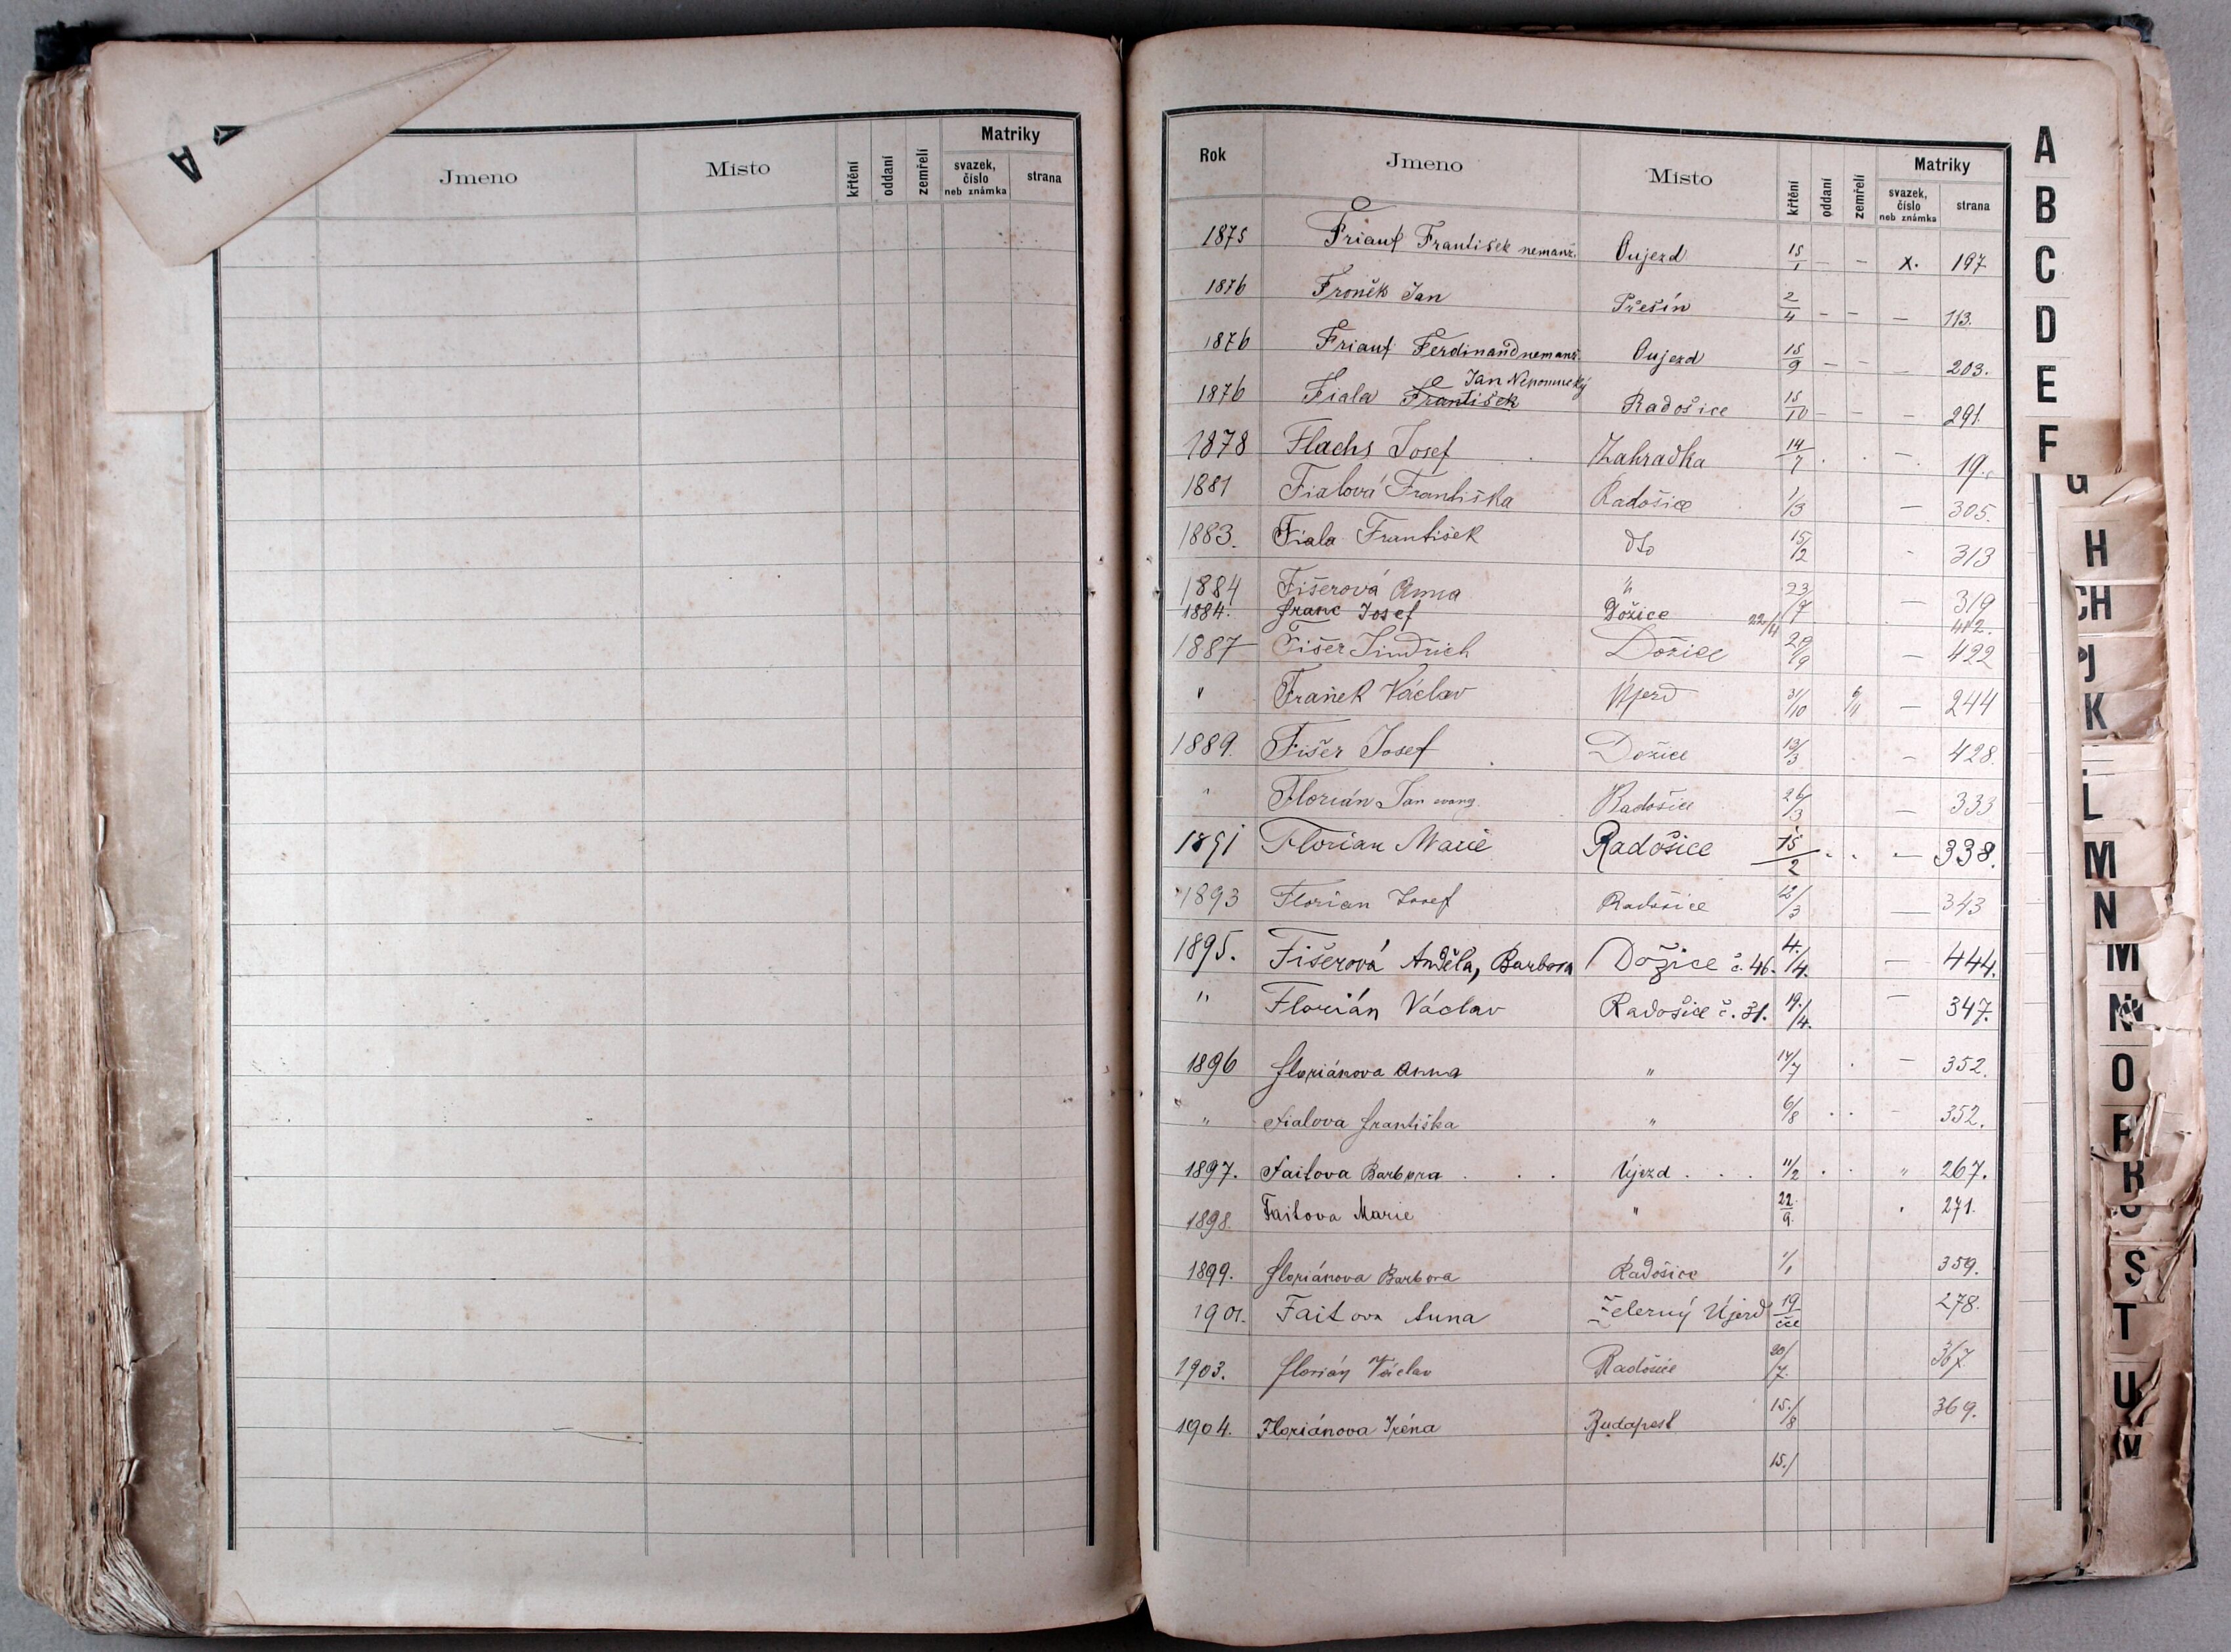 A
Jmeno Místo křtění oddaní zemřelí Matriky svazek, číslo neb známka strana
Rok Jmeno Místo křtění oddaní zemřelí Matriky svazek, číslo neb známka strana
1875 Friauf František nemanž. Oujezd 15/1 – – X. 197
1876 Froněk Jan Přešín 2/4 – – — 113.
1876 Friauf Ferdinand nemanž. Oujezd 15/9 – – — 203.
Jan Nepomucký
1876 Fiala František Radošice 15/10 – – – 291.
1878 Flachs Josef Zahradka 14/7 . . — 19.
1881 Fialová Františka Radošice 1/3 — 305.
1883. Fiala František dto 15/12 - 313
1884 Fišerová Anna " 23/7 — 319
1884. Franc Josef Dožice 22/4 412.
1887 Fišer Jindřich Dožice 29/9 — 422
" Franěk Václav Újezd 31/10 6/11 — 244
1889. Fišer Josef Dožice 13/3 – 428.
" Florián Jan evang. Radošice 26/3 — 333
1891 Florian Marie Radošice 15/2 . . — 338.
1893 Florian Josef Radošice 12/3 — 343
1895. Fišerová Anděla, Barbora Dožice č. 46. 4./4. — 444.
" Florián Václav Radošice č. 31. 19./4. — 347.
1896 Floriánova Anna " 14/7 . — 352.
" Fialova Františka " 6/8 . . – 352.
1897. Faitova Barbora . . . Újezd . . . 11/2 . . " 267.
1898. Faitova Marie " 22./9. " 271.
1899. Floriánova Barbora Radošice 1/1 359.
1901. Faitova Anna Železný Újezd 19/čce 278.
1903. Florián Václav Radošice 20/7. 367
1904. Floriánova Iréna Budapest 15./8 369.
15./
A
B
C
D
E
F
G
H
CH
J
K
L
M
N
M
N
O
P
R
S
T
U